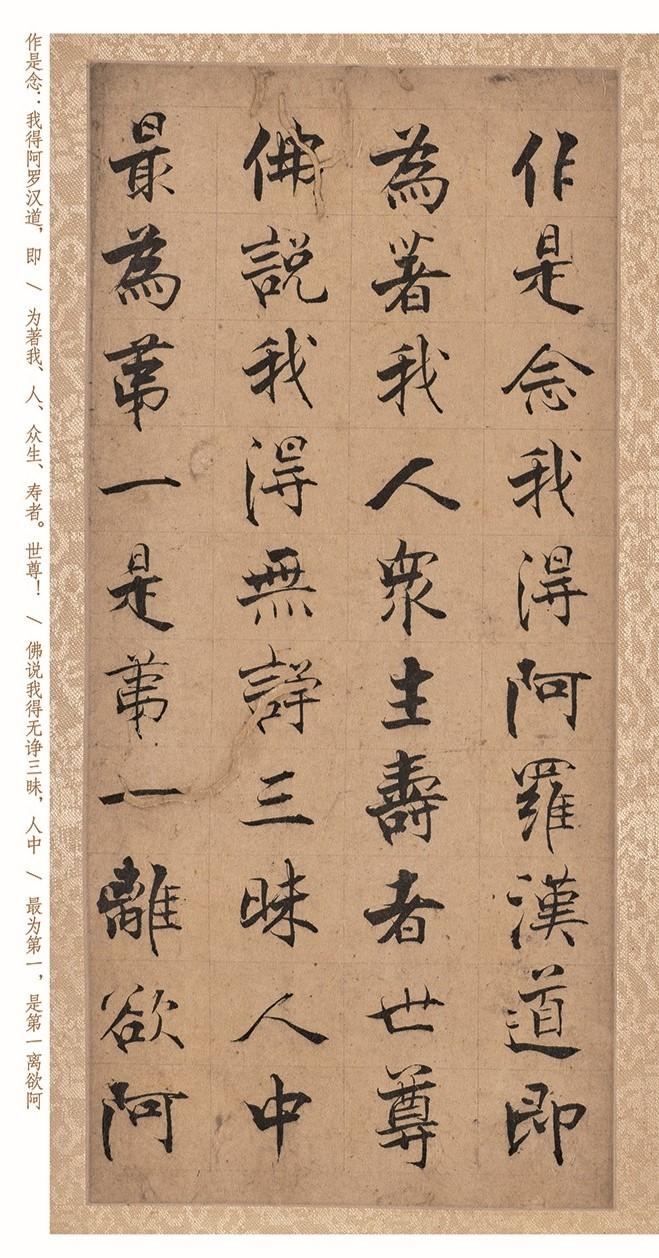 作是念我得阿羅漢道即
為著我人衆生壽者世尊
佛説我得無諍三昧人中
最為第一是第一離欲阿
作是念：我得阿罗汉道，即 / 为著我、人、众生、寿者。世尊！ / 佛说我得无诤三昧，人中 / 最为第一，是第一离欲阿